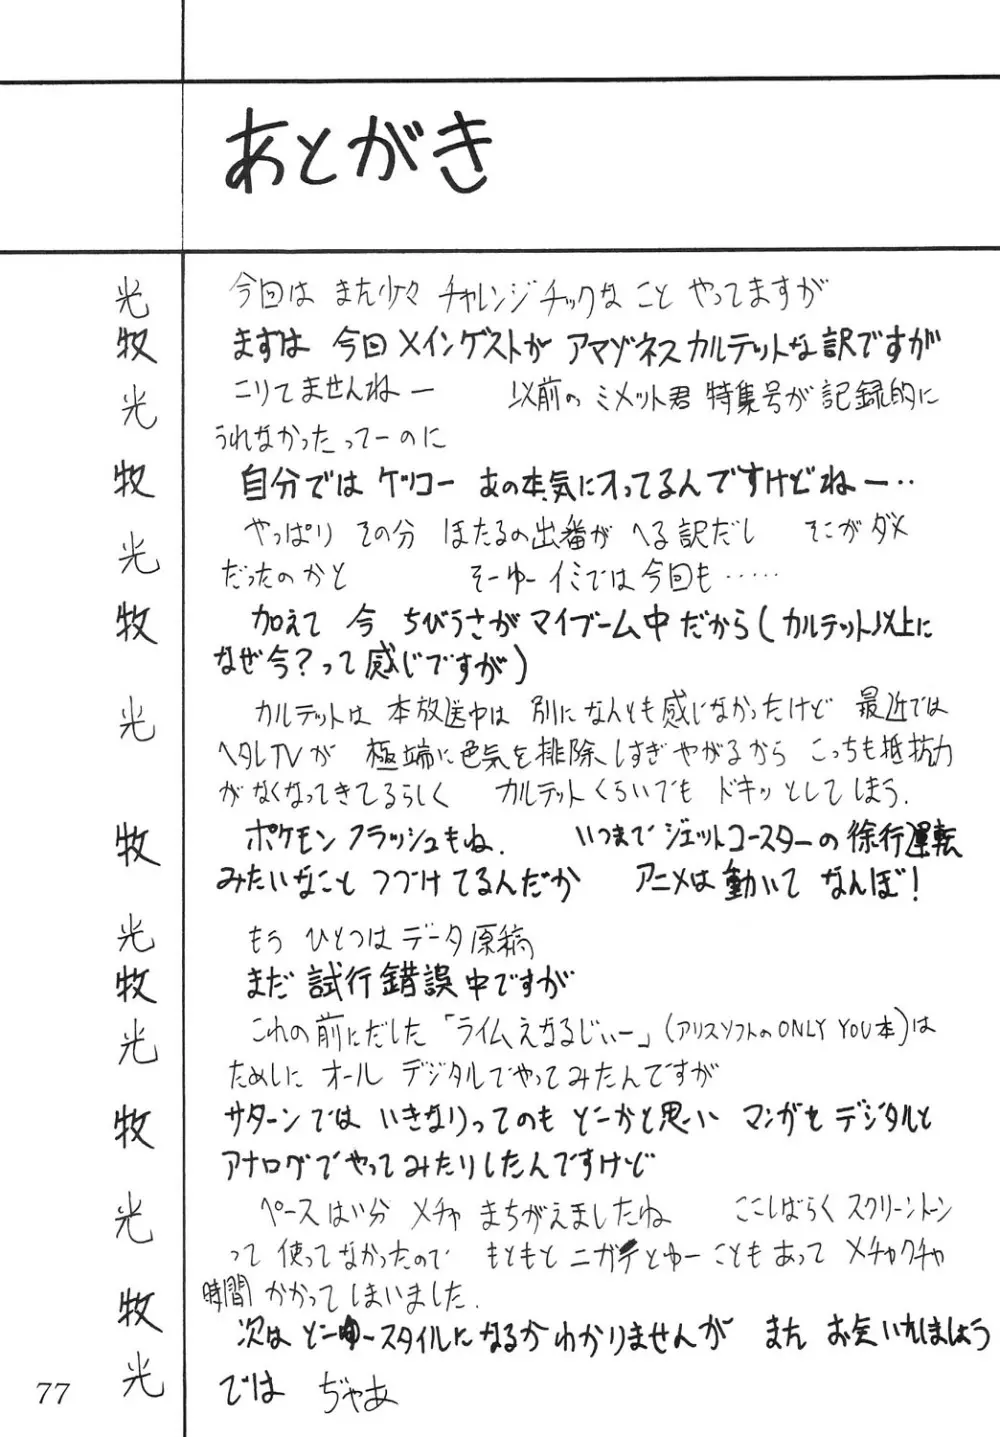 あとがき
光 今回は また少々 チャレンジチックなこと やってますが
牧 まずは 今回メインゲストが アマゾネスカルテットな訳ですが
光 こりてませんねー 以前のミメット君特集号が記録的に
うれなかったってーのに
牧 自分では ケッコー あの本気に入ってるんですけどねー‥
光 やっぱり その分 ほたるの出番が へる訳だし そこがダメ
だったのかと そーゆーイミでは今回も……
牧 加えて 今 ちびうさがマイブーム中だから(カルテット以上に
なぜ今?って感じですが)
光 カルテットは 本放送中は 別になんとも感じなかったけど 最近では
ヘタレTVが 極端に色気を排除しすぎやがるから こっちも抵抗力
がなくなってきてるらしく カルテットくらいでも ドキッとしてしまう.
牧 ポケモンフラッシュもね. いつまでジェットコースターの徐行運転
みたいなこと つづけてるんだか アニメは動いてなんぼ!
光 もう ひとつはデータ原稿
牧 まだ試行錯誤中ですが
光 これの前にだした「ライムえなるじぃー」(アリスソフトのONLY YOU本)は
ためしに オール デジタルでやってみたんですが
牧 サターンでは いきなりってのも どーかと思い マンガを デジタルと
アナログでやってみたりしたんですけど
光 ペースは分 メチャ まちがえましたね ここしばらくスクリーントーン
って 使ってなかったので もともとニガテとゆーこともあって メチャクチャ
時間かかってしまいました.
牧 次は どーゆースタイルになるかわかりませんが また お会いしましょう
光 では ぢゃあ
77